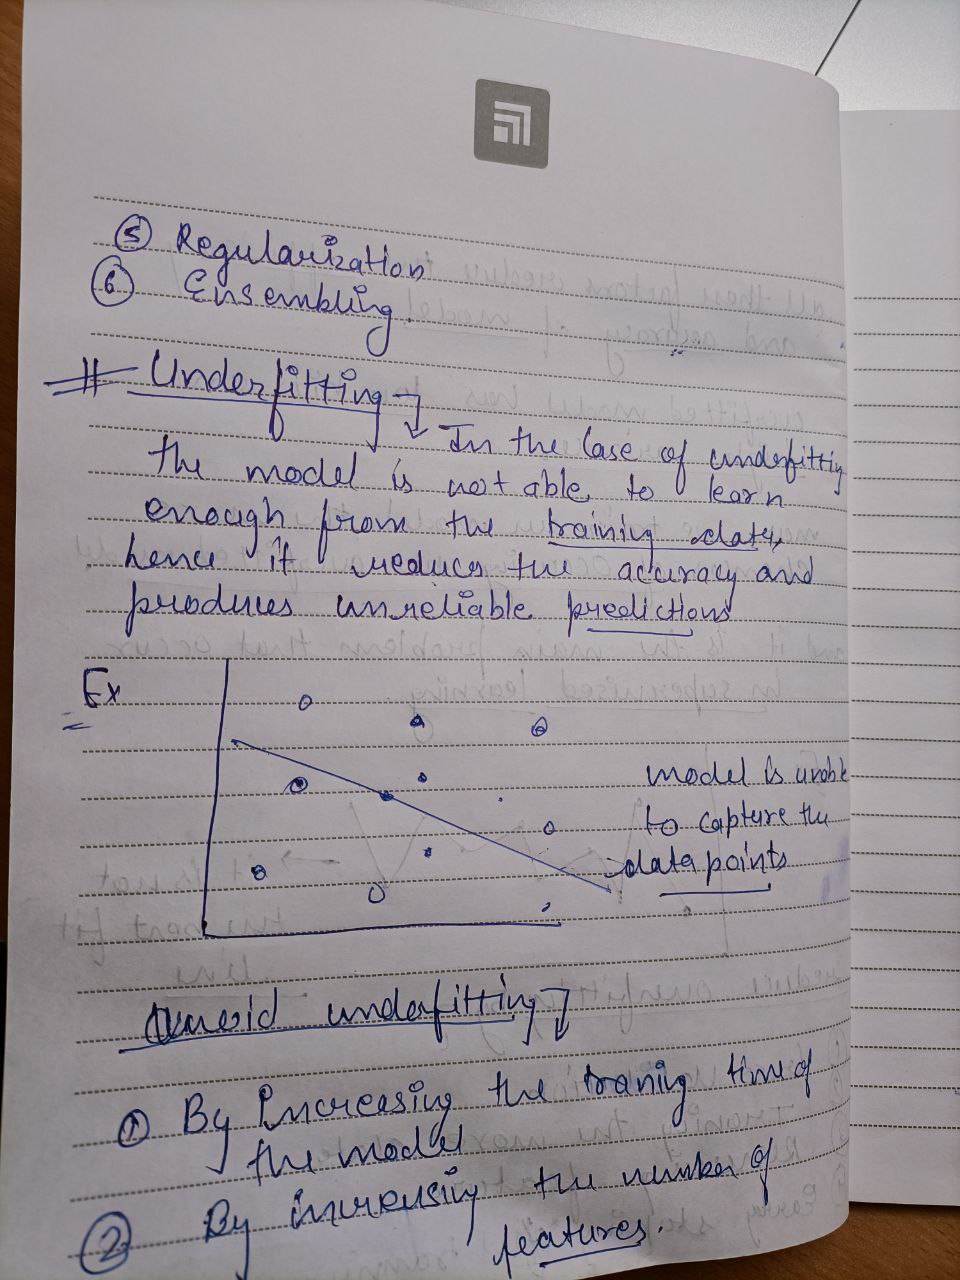 ⑤ Regularization
⑥ Ensembling.
# Underfitting →
In the case of underfitting
the model is not able to learn
enough from the training data,
hence it reduces the accuracy and
produces unreliable predictions
Ex
model is unable
to capture the
data points
Avoid underfitting
① By Increasing the traning time of
the model
② By increasing the number of
features.